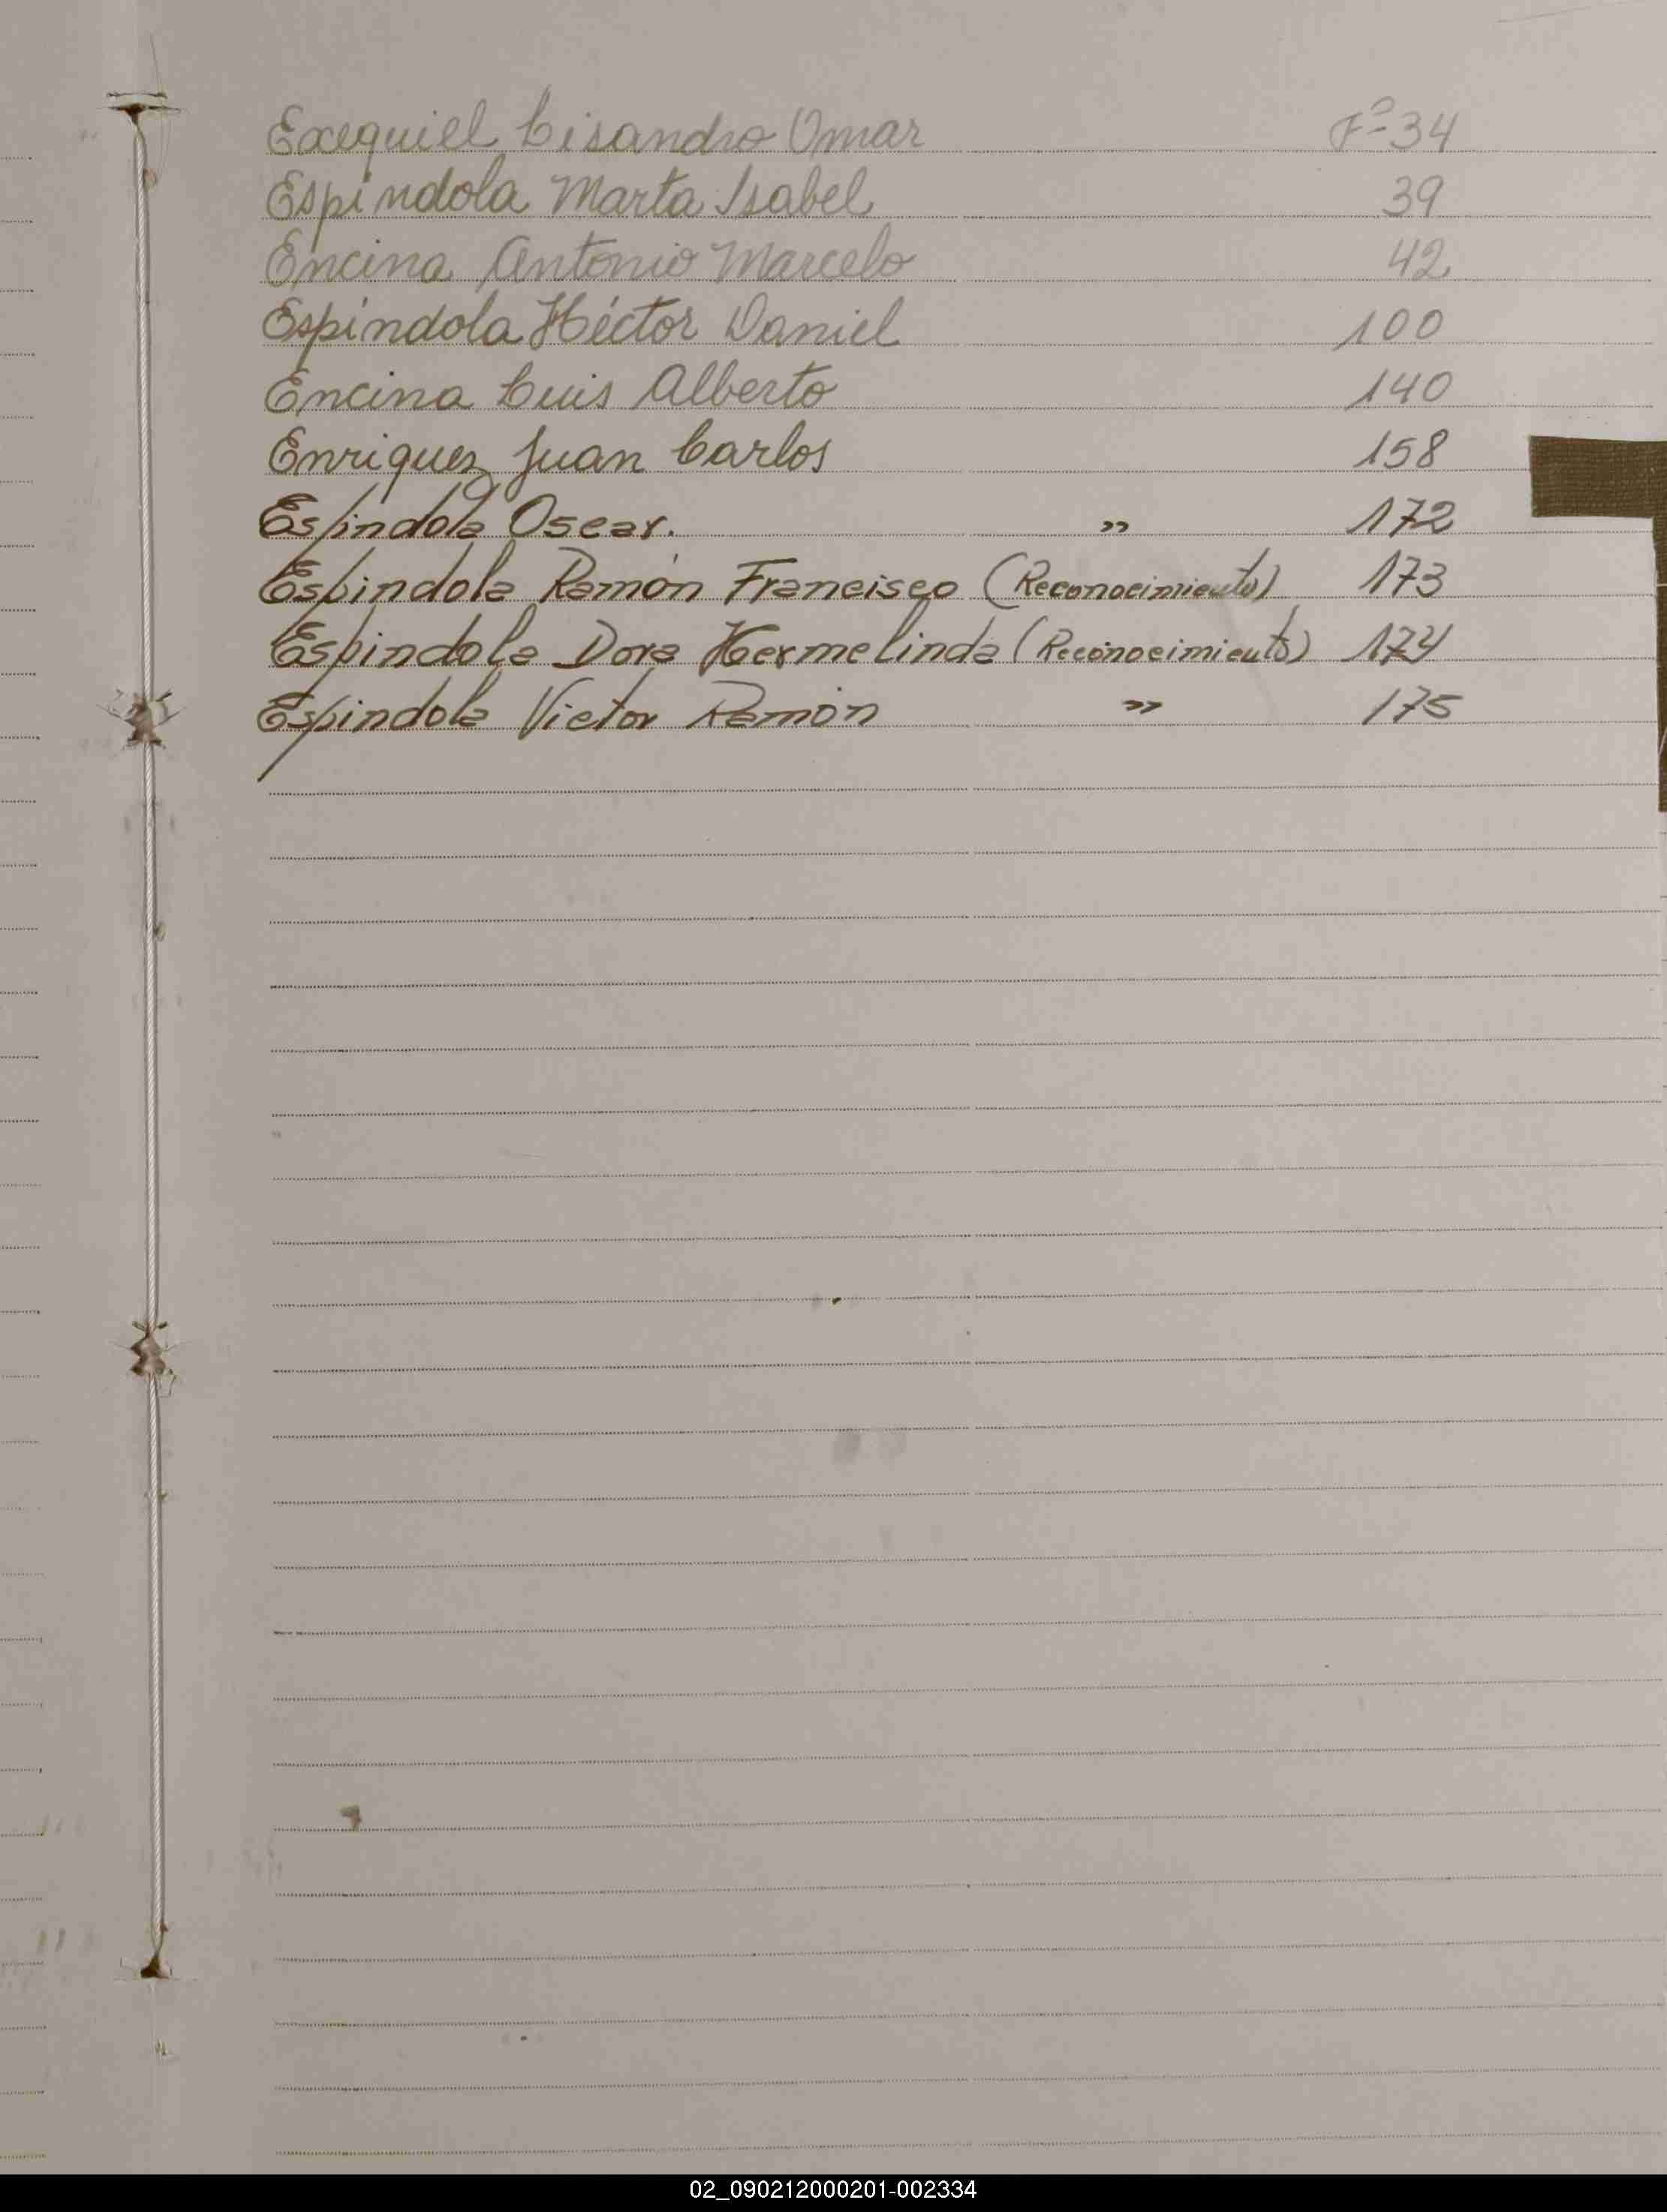 Exequiel Lisandro Omar Fº 34
Espíndola Marta Isabel 39
Encina Antonio Marcelo 42
Espíndola Héctor Daniel 100
Encina Luis Alberto 140
Enriquez Juan Carlos 158
Espindola Oscar. " 172
Espindola Ramón Francisco (Reconocimiento) 173
Espindola Dora Hermelinda (Reconocimiento) 174
Espindola Victor Ramón " 175
02_090212000201-002334